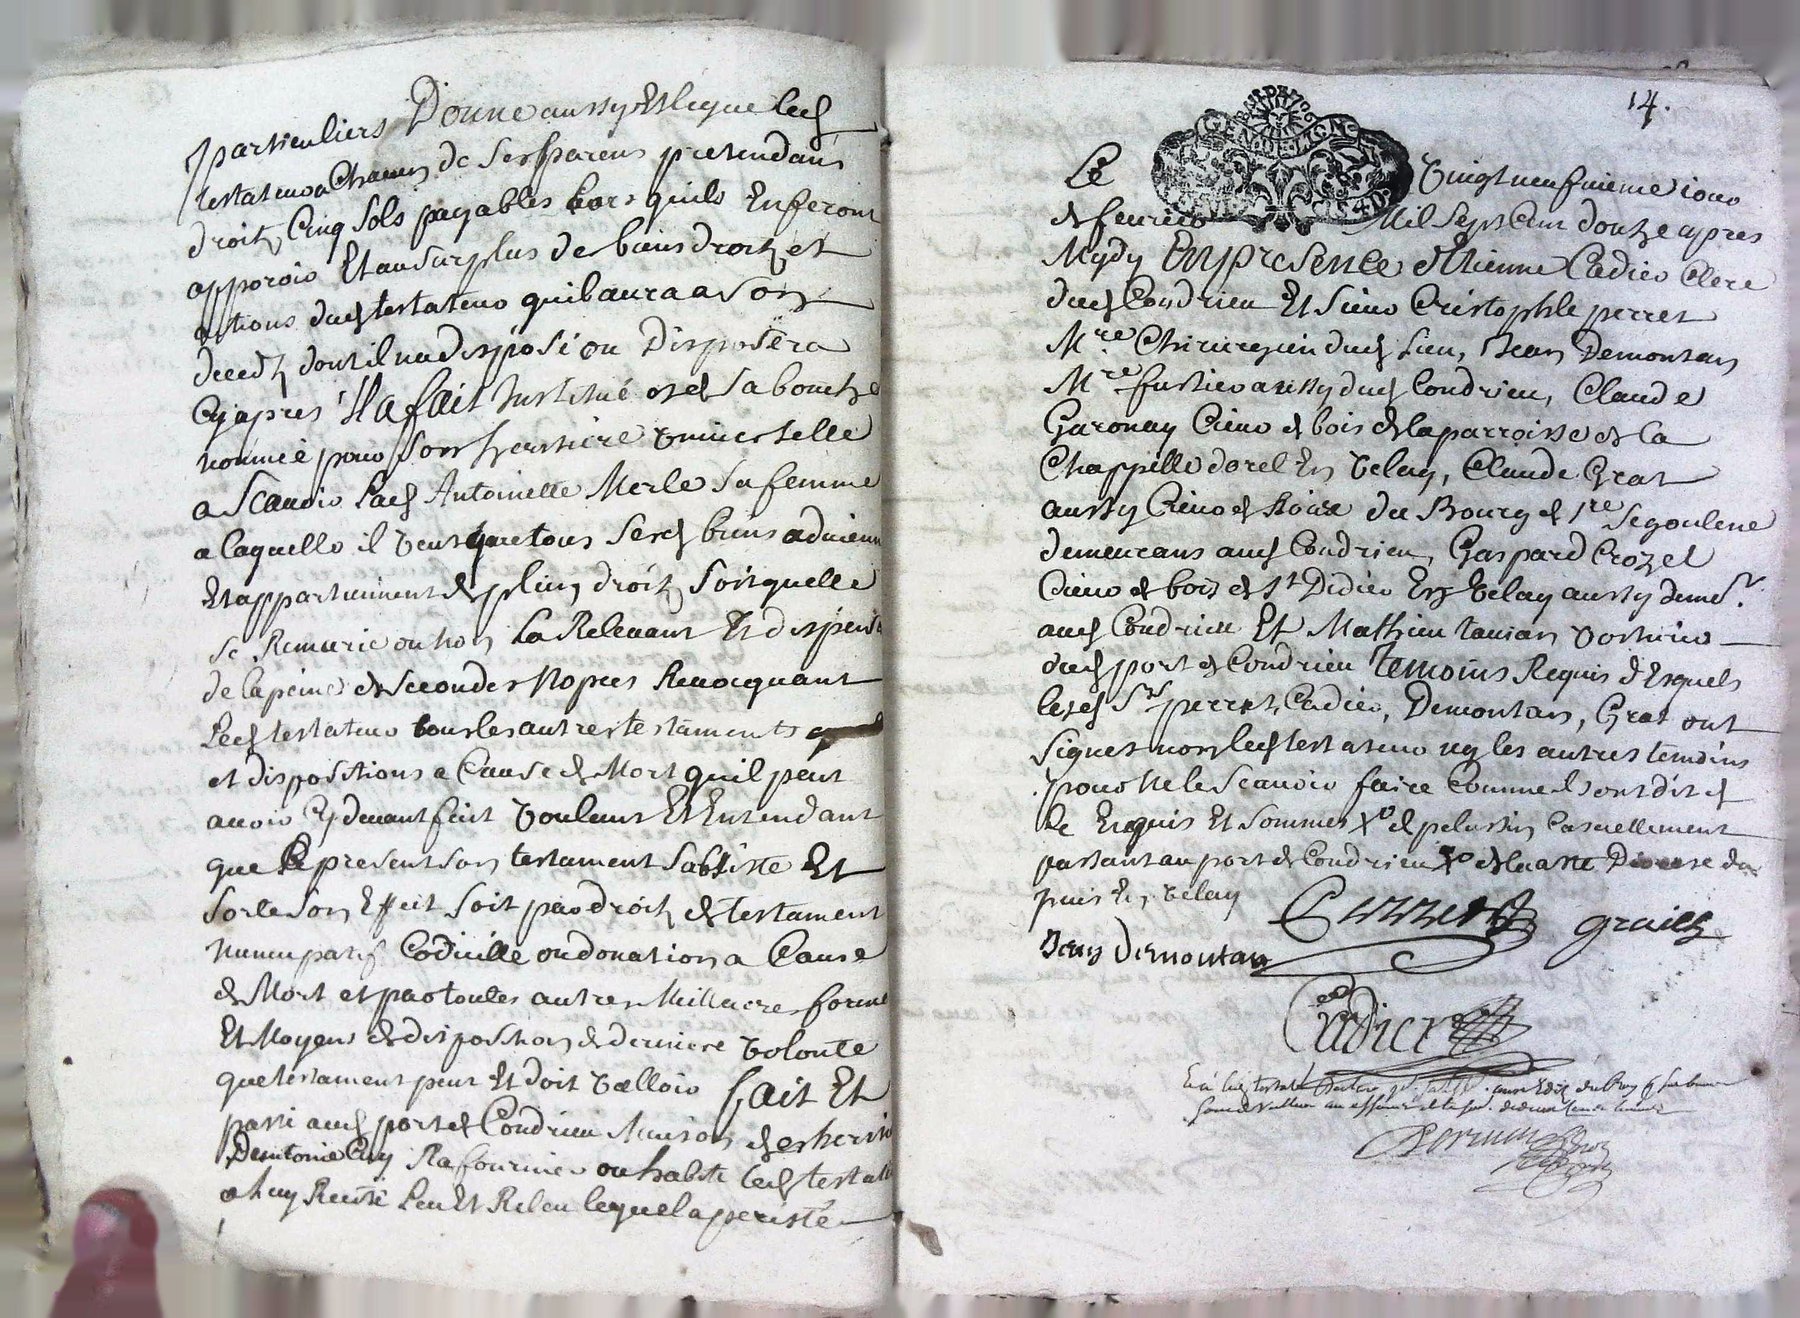 particuliers Donne aussy Et legue led
testateur a Chacun de Ses parens pretendans
droit, Cinq Sols payables Lors quils En feront
apparoir Et au Surplus de biens droitz et
actions dud testateur quil aura a Son
deced, dont il na disposé ou Disposera
Cy apres Il a fait Institué et de Sa bouche
nommé pour Son heritiere universelle
a Scauoir Lad Antoinette Merle Sa femme
a laquelle il veut que tous Sesd biens aduienn
Et appartiennent de plein droit, Soit quelle
Se Remarie ou non La Releuant Et dispens
de la peine de Secondes Nopces Reuocquant
Led testateur tous les autres testaments
et dispositions a Cause de Mort quil peut
auoir Cy deuant fait voulant Et Entendant
que Le present Son testament Subsiste Et
Sorte Son Effect Soit par droit de testament
Nuncupatif Codicille ou donation a Cause
de Mort et par toutes autres Meilleures forme
Et Moyens de disposition de derniere volonté
que testament peut Et doit valloir Fait Et
passé aud port de Condrieu Maison des
Rafournier ou habite led testat
a luy Recité Leu Et Releu lequel a peristé
14.
Le vingt neufuieme iour
de feurier Mil Sept Cent douze apres
Mydy En presence d'Etienne Cadier Clerc
dud Condrieu Et Sieur Cristophle perret
Mre Chirurgien dud Lieu, Jean Demontan
Mre fustier aussy dud Condrieu, Claude
Garonay Cieur de bois de la parroisse de La
Chappelle dorel En velay, Claude Grat
aussy Cieur de du Bourg de Segoulene
demeurans aud Condrieu, Gaspard Crozet
Cieur de bois de St Didier En velay aussy demt.
aud Condrieu Et Mathieu
dud port de Condrieu Temoins Requis d'Esquels
lesd Srs perret, Cadier, Demontan, Grat ont
Signet non led testateur ny les autres temoins
pour Ne le Scauoir faire Comme ils ont dit de
Ce Enquis Et Sommes Xo de pelussin Casuellement
passant au port de Condrieu Xo de Diocese du
puis En velay
Perret grailt
Jean Demontan
Cadier